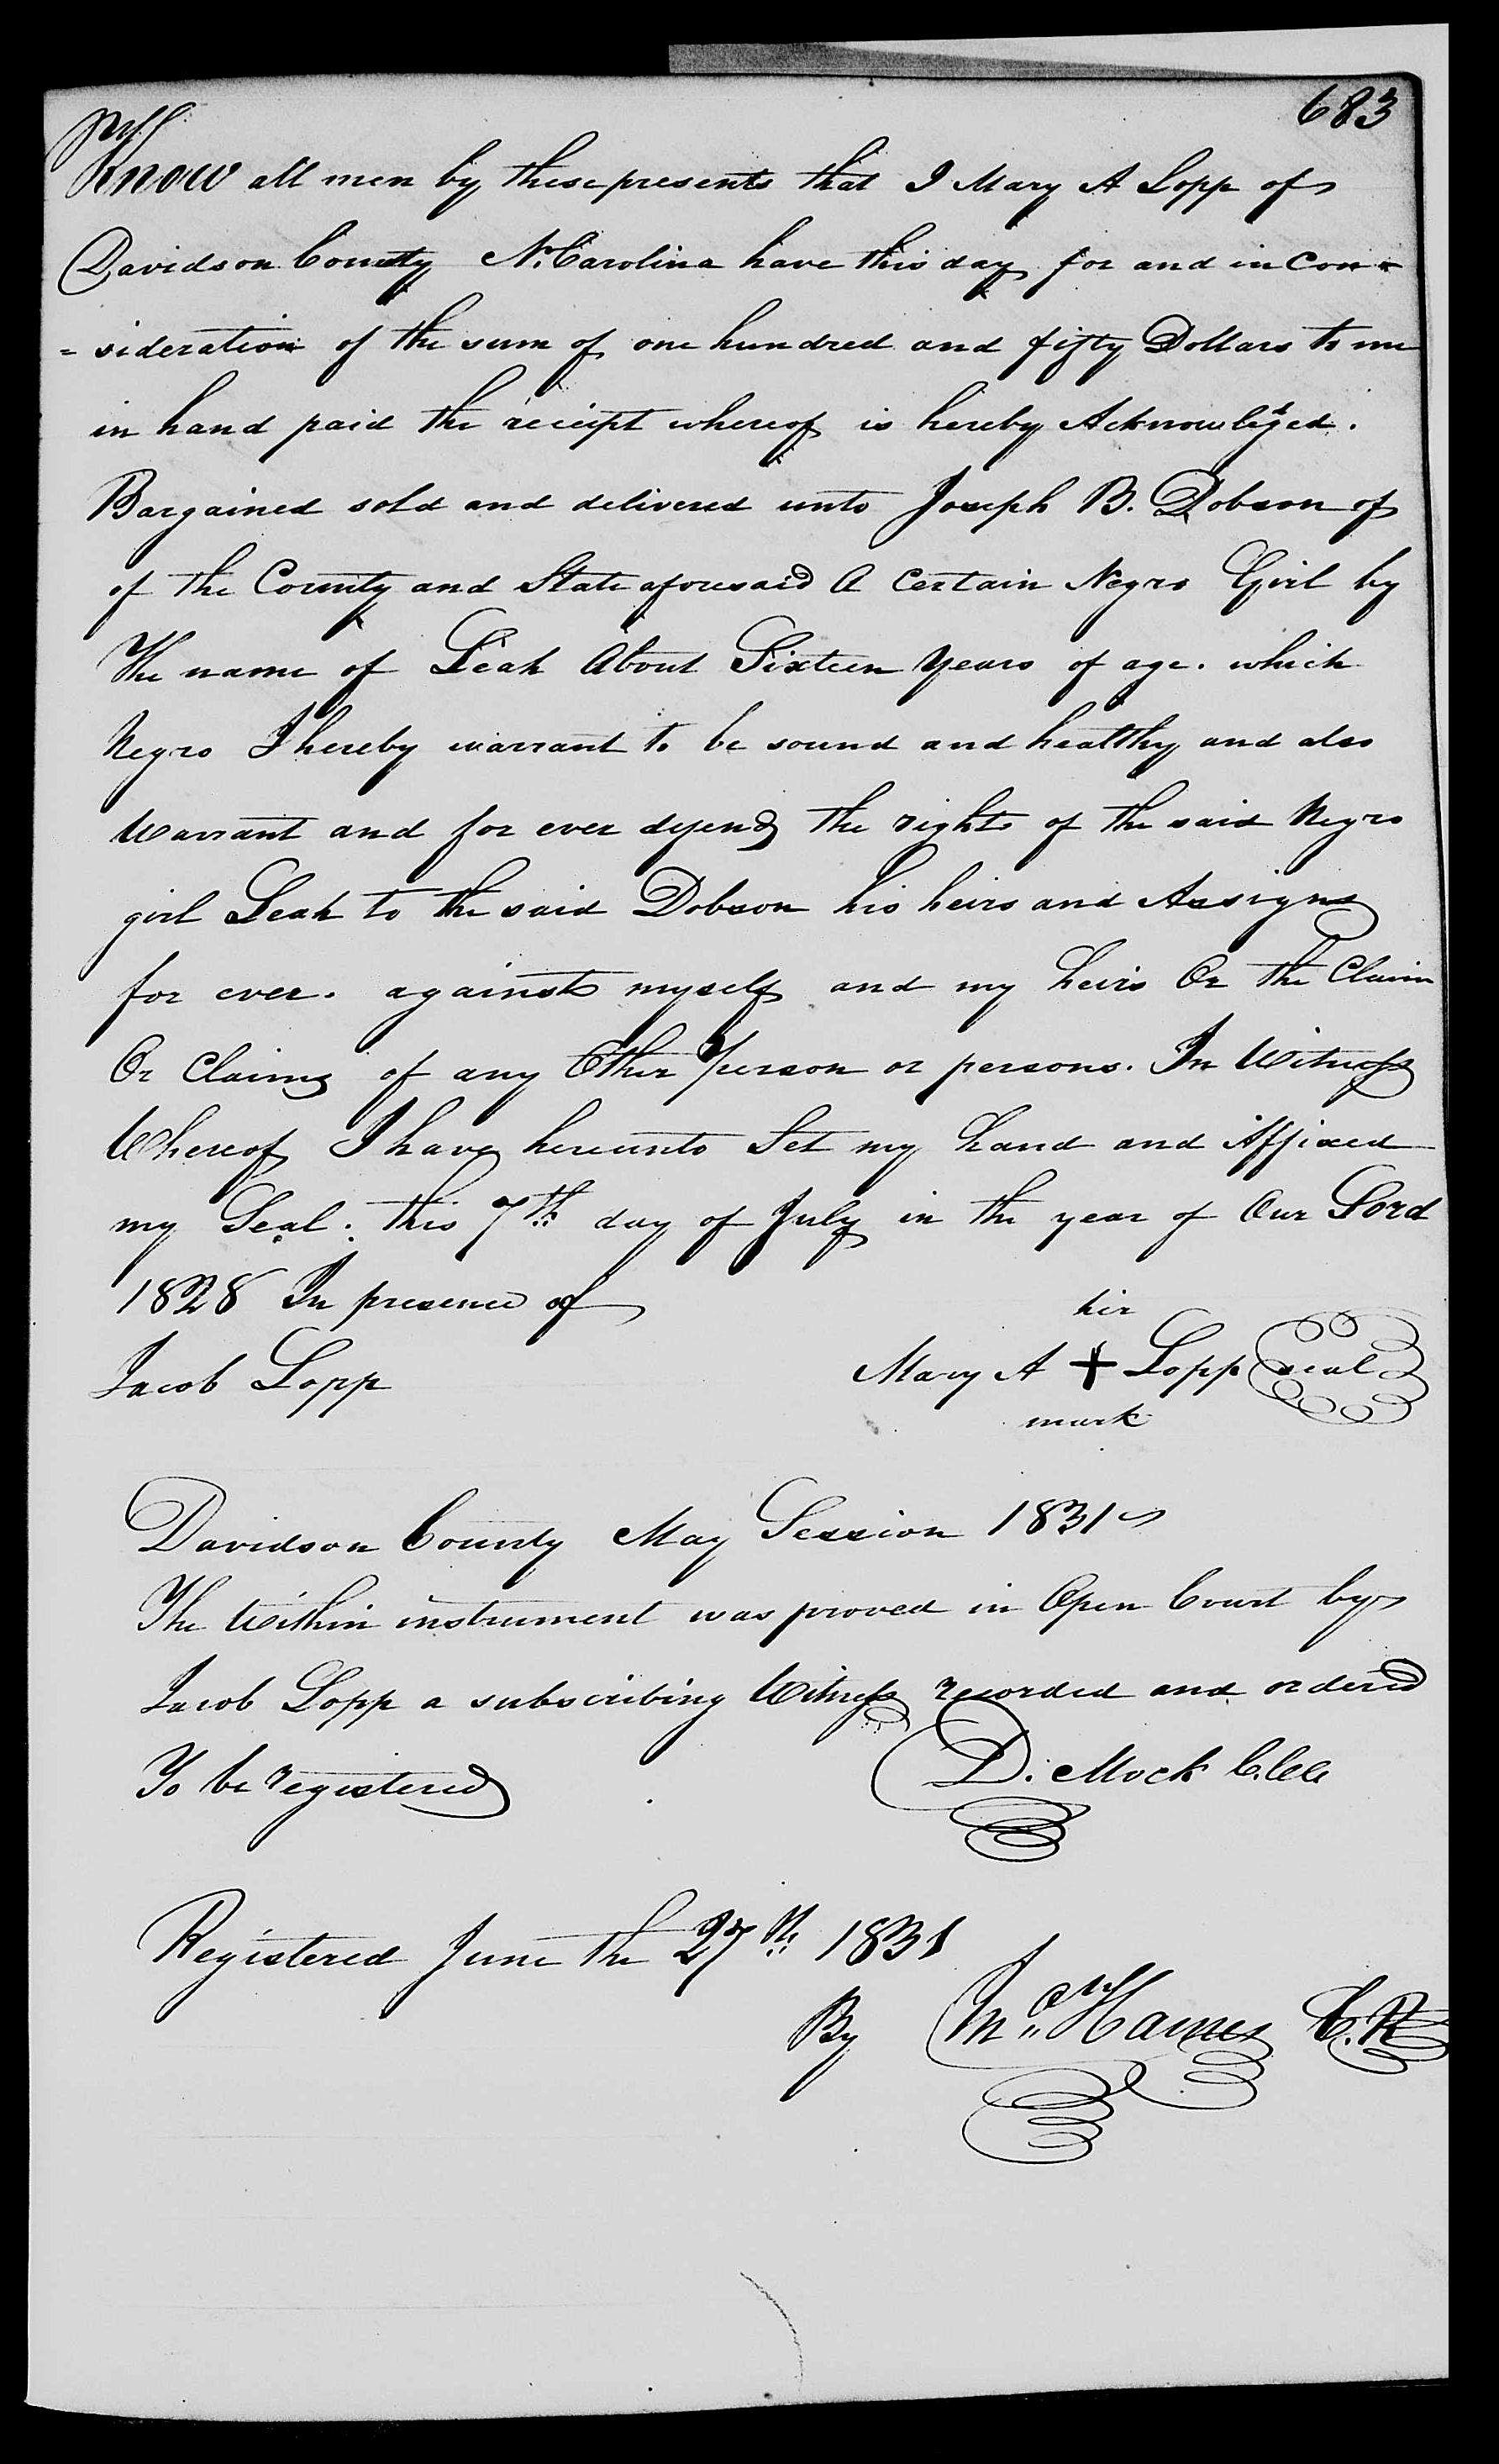 683
Know all men by these presents that I Mary A Lopp of
Davidson County N. Carolina have this day for and in Con-
=sideration of the sum of one hundred and fifty Dollars to me
in hand paid the receipt whereof is hereby Acknowledged.
Bargained sold and delivered unto Joseph B. Dobson of
of the County and State aforesaid A Certain Negro Girl by
The name of Leah About Sixteen Years of age. which
Negro I hereby warrant to be sound and healthy and also
Warrant and for ever defend the right of the said Negro
girl Leah to the said Dobson his heirs and Assigns
for ever. against myself and my heirs Or the Claim
Or Claims of any Other person or persons. In Witness
Whereof I have hereunto Set my hand and Affixed
my Seal. this 7th day of July in the year of Our Lord
1828 In presence of
her
Jacob Lopp Mary A + Lopp seal
mark
Davidson County May Session 1831
The Within instrument was proved in Open Court by
Jacob Lopp a subscribing Witness recorded and ordered
To be registered D. Mock C.Clk
Registered June the 27th 1831
By Haines C.R